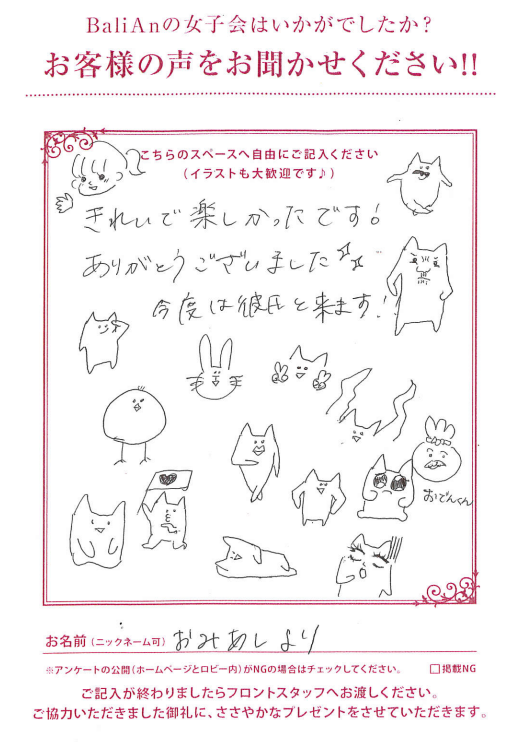 BaliAnの女子会はいかがでしたか?
お客様の声をお聞かせください!!
こちらのスペースへ自由にご記入ください
(イラストも大歓迎です♪)
きれいで楽しかったです!
ありがとうございました
今度は彼氏と来ます!
おでんくん
お名前(ニックネーム可) おみあしより
※アンケートの公開(ホームページとロビー内)がNGの場合はチェックしてください。 □掲載NG
ご記入が終わりましたらフロントスタッフへお渡しください。
ご協力いただきました御礼に、ささやかなプレゼントをさせていただきます。